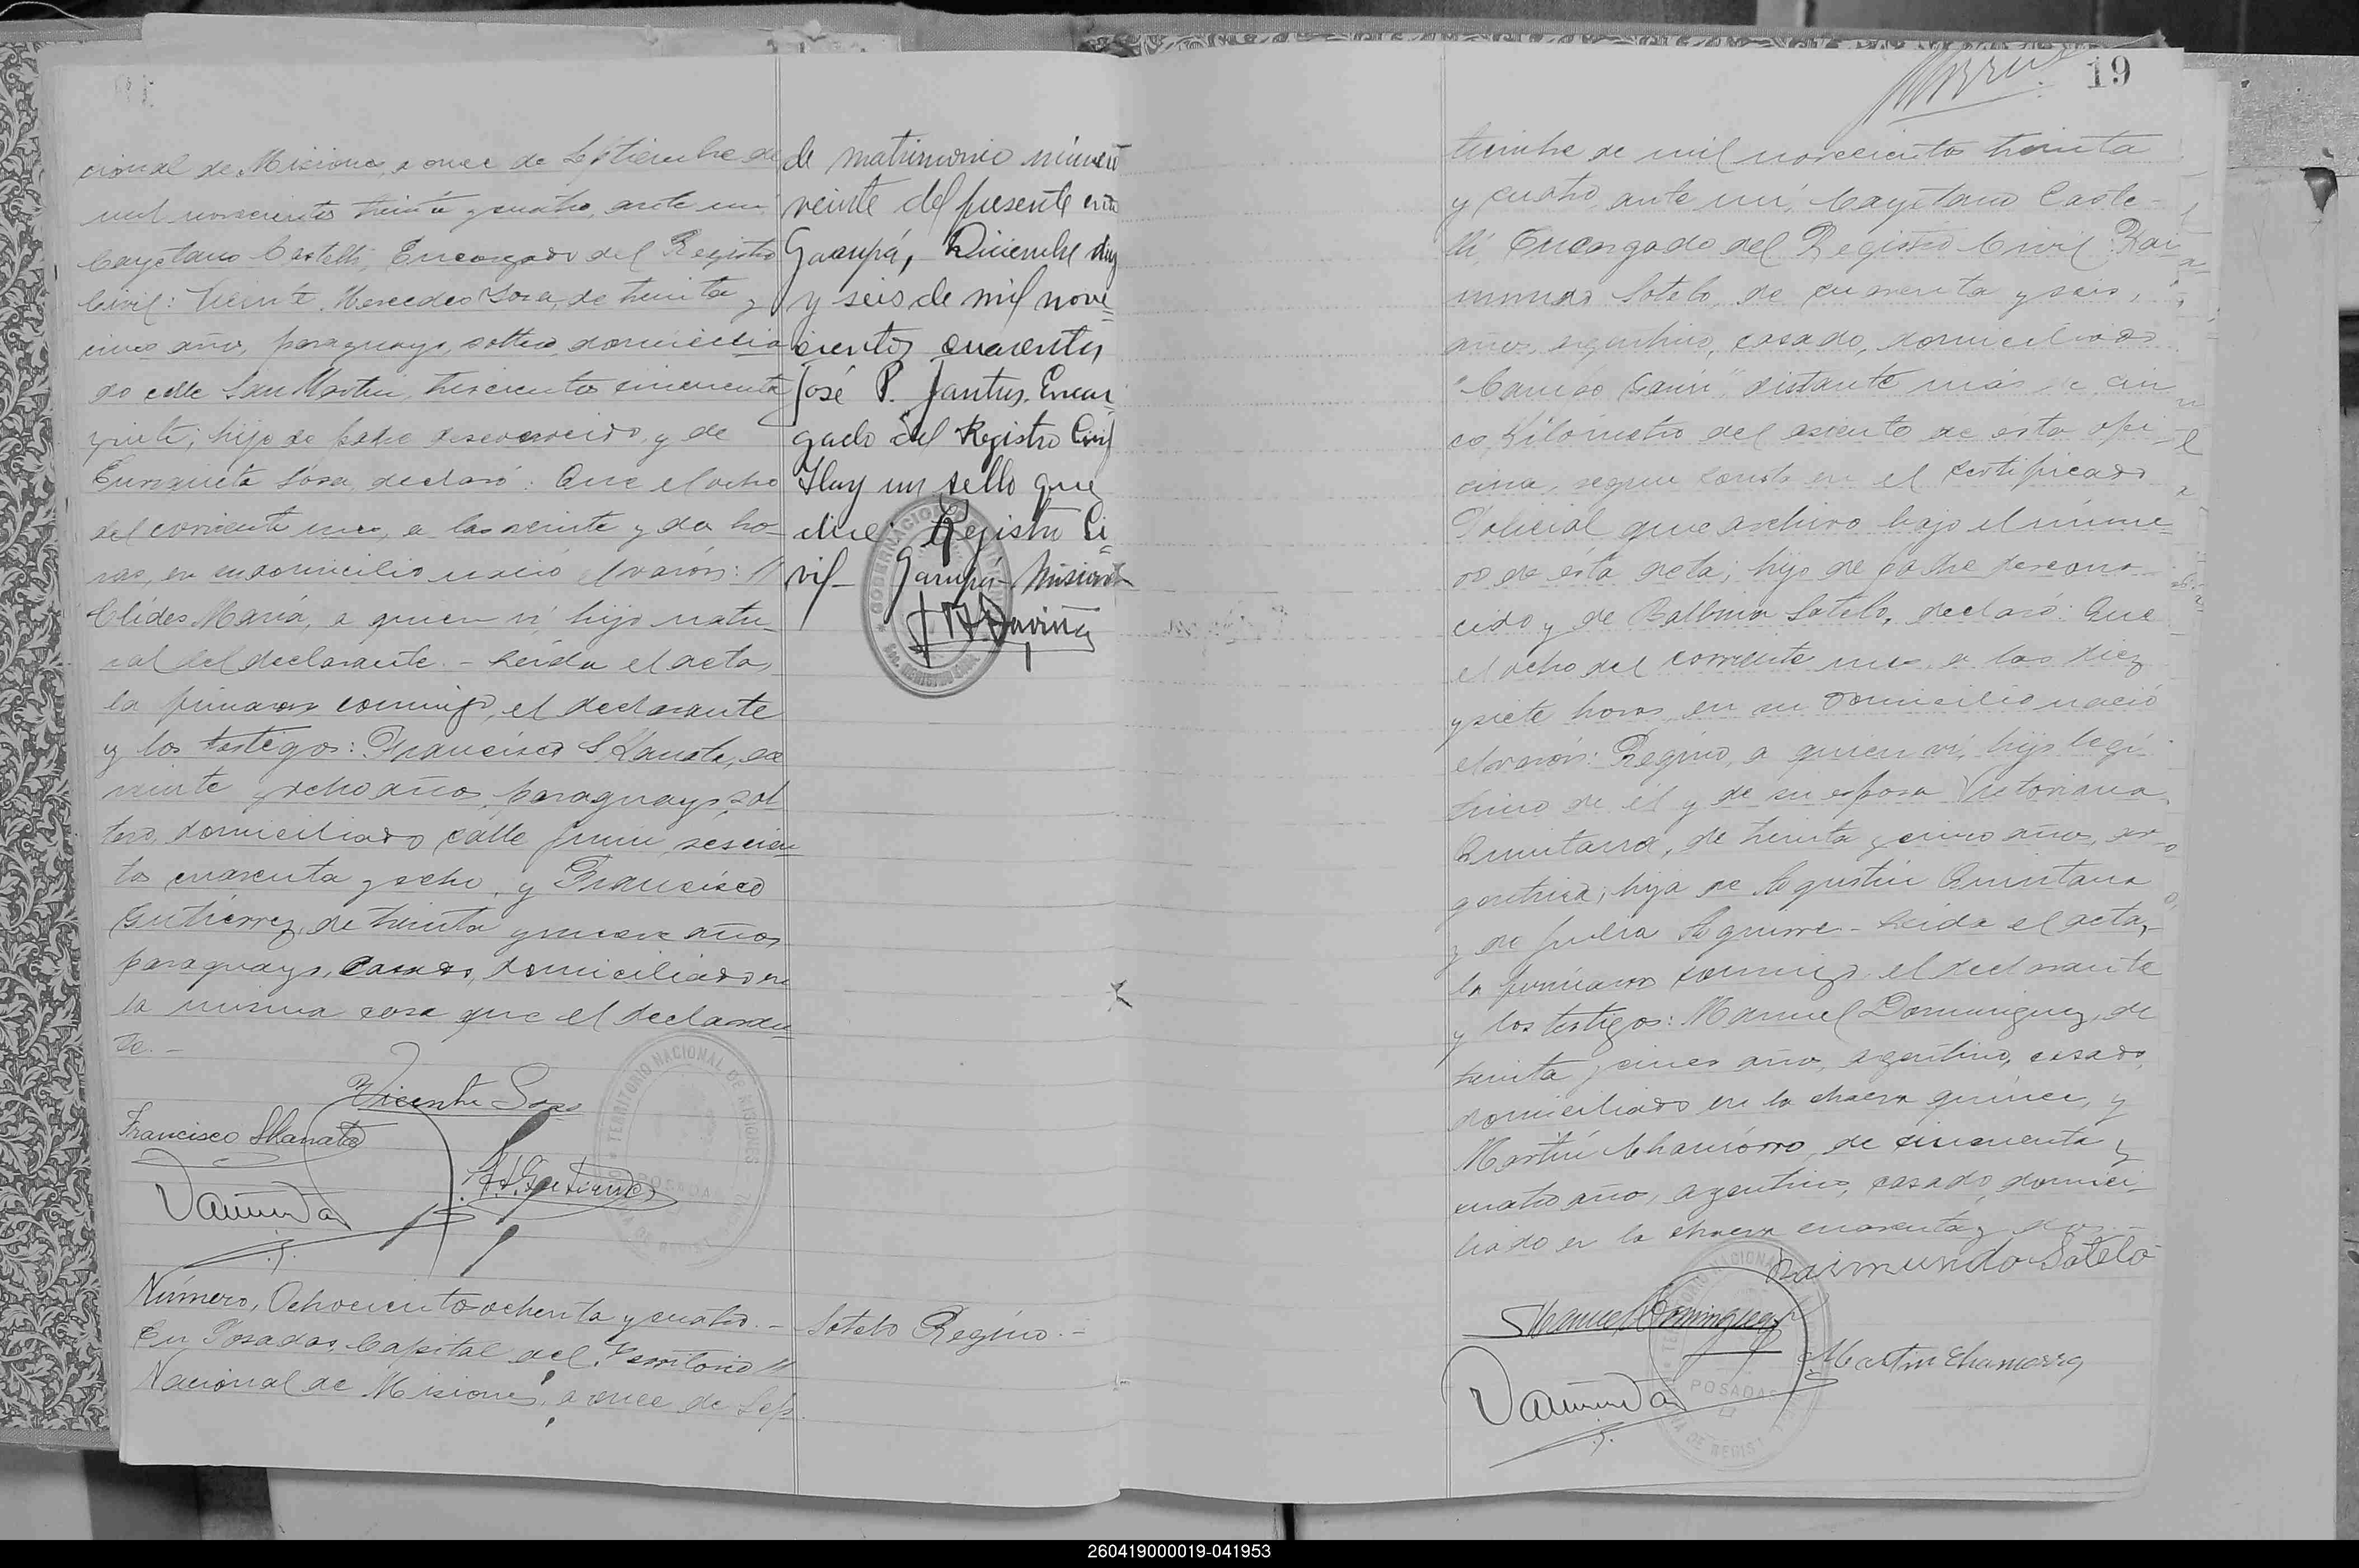 cional de Misiones, a once de Septiembre de
mil novecientos treinta y cuatro, ante mi
Cayetano Castelli, Encargado del Registro
Civil: Vicente Mercedes Sosa, de treinta y
cinco años, paraguayo, soltero, domicilia
do calle San Martin, trescientos cincuenta
y siete; hijo de padre desconocido, y de
Enriqueta Sosa, declaró: Que el ocho
del corriente mes, a las veinte y dos ho-
ras, en su domicilio nació el varón:
Clides María, a quien vi, hijo natu-
ral del declarante. - Leída el acta,
la firmaron conmigo, el declarante
y los testigos: Francisco Skanata, de
veinte y ocho años, paraguayo, sol
tero, domiciliado calle Junin, seiscien
tos cuarenta y ocho, y Francisco
Gutiérrez, de treinta y nueve años
paraguayo, casado, domiciliado en
la misma casa que el declaran
te. -
Vicente Sosa
Francisco Skanata
TERRITORIO NACIONAL DE MISIONES
POSADAS
Número, Ochocientos ochenta y cuatro. -
En Posadas, Capital del Territorio
Nacional de Misiones, a once de Sep
de matrimonio número
veinte del presente año
Garupá, Diciembre diez
y seis de mil nove
cientos cuarenta
José P. Jantus. Encar
gado del Registro Civil
Hay un sello que
dice: Registro Ci
vil - Garupá - Misiones
GOBERNACION
Sotelo Regino. -
19
tiembre de mil novecientos treinta
y cuatro, ante mí, Cayetano Caste-
lli, Encargado del Registro Civil: Rai
mundo Sotelo, de cuarenta y seis,
años, argentino, casado, domiciliado
distante más de cin
co, Kilómetro del asiento de esta ofi
cina, segun consta en el certificado
Policial que archivo bajo el núme-
ro de esta acta; hijo de padre descono
cido y de Balbina Sotelo, declaró: Que
el ocho del corriente mes, a las diez
y siete horas, en su domicilio nació
el varón: Regino, a quien vi, hijo legí
timo de él y de su esposa Victoriana
Quintana, de treinta y cinco años, ar-
gentina; hija de Agustin Quintana
y de Julia Aguirre - Leída el acta,
la firmaron conmigo el declarante
y los testigos: Manuel Dominguez, de
treinta y cinco años, argentino, casado,
domiciliado en la chacra quince, y
Martín Chamorro, de cincuenta y
cuatro años, argentino, casado, domici
liado en la chacra cuarenta y dos. -
Raimundo Sotelo
Manuel Dominguez
Martin Chamorro
POSADAS
260419000019-041953